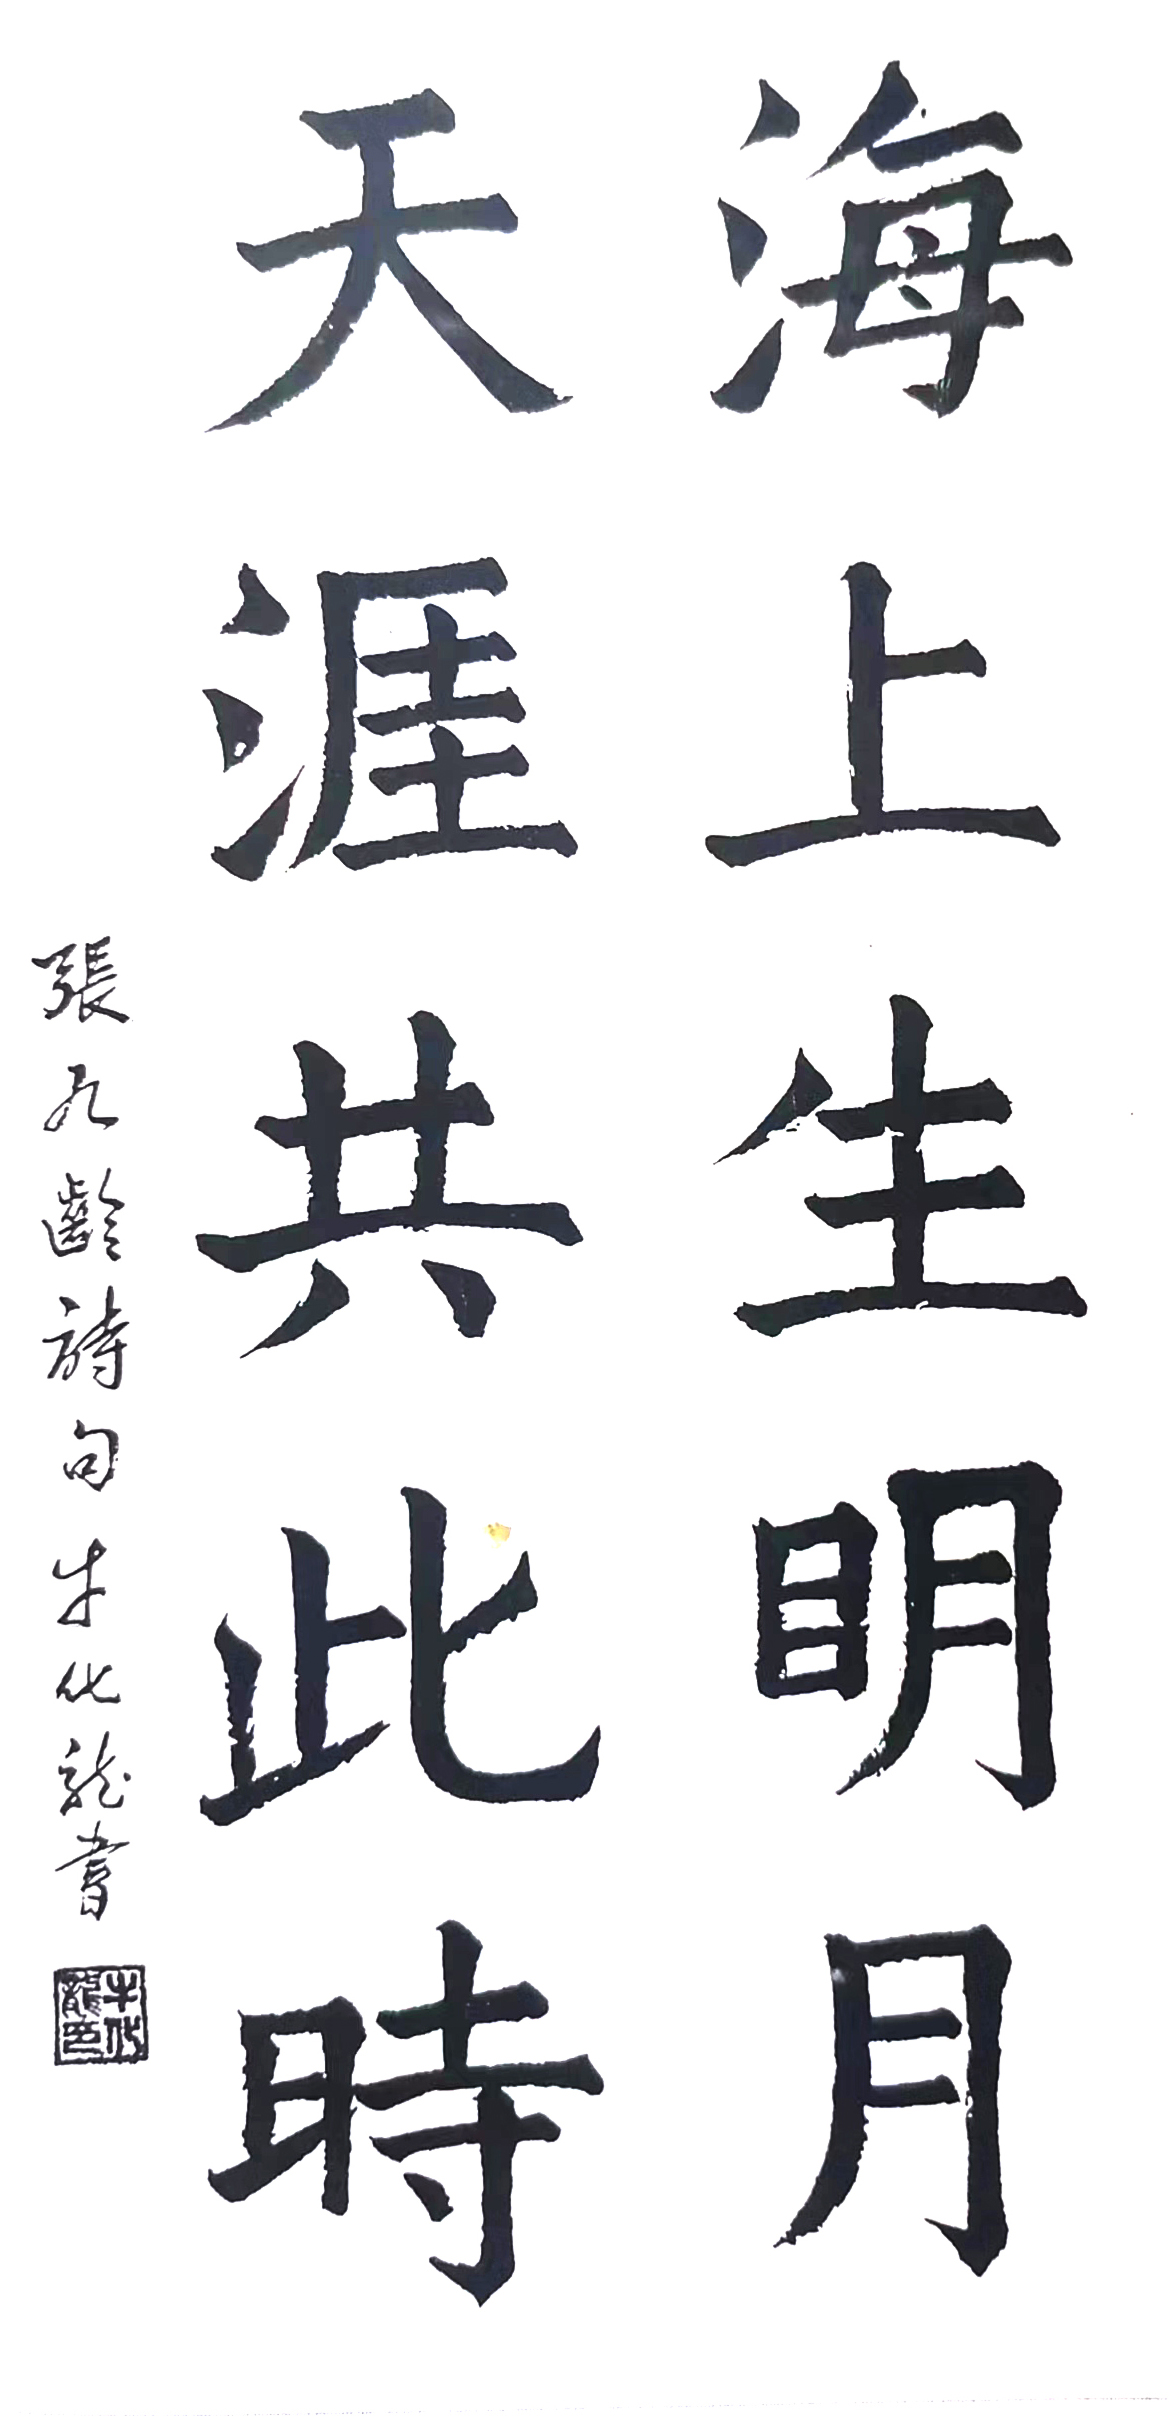 海上生明月
天涯共此時
張九齡詩句牛化龍書
牛化龍印